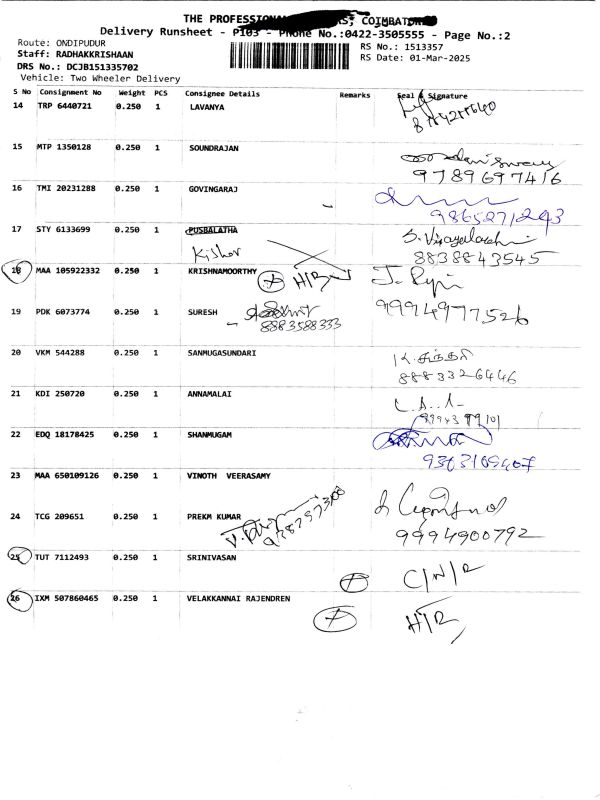 THE PROFESSIONAL COIMBATORE
Delivery Runsheet - P103 - Phone No.:0422-3505555 - Page No.:2
Route: ONDIPUDUR
RS No.: 1513357
Staff: RADHAKKRISHAAN
RS Date: 01-Mar-2025
DRS No.: DCJB151335702
Vehicle: Two Wheeler Delivery
S No Consignment No Weight PCS Consignee Details Remarks Seal & Signature
14 TRP 6440721 0.250 1 LAVANYA
15 MTP 1350128 0.250 1 SOUNDRAJAN
9789697416
16 TMI 20231288 0.250 1 GOVINGARAJ
9865271243
17 STY 6133699 0.250 1 PUSBALATHA
Kishor
S. Vijayalakshmi
8838843545
18 MAA 105922332 0.250 1 KRISHNAMOORTHY
H/R
19 PDK 6073774 0.250 1 SURESH
8883588333
9994977526
20 VKM 544288 0.250 1 SANMUGASUNDARI
8883326446
21 KDI 250720 0.250 1 ANNAMALAI
22 EDQ 18178425 0.250 1 SHANMUGAM
9363169407
23 MAA 650109126 0.250 1 VINOTH VEERASAMY
24 TCG 209651 0.250 1 PREKM KUMAR
9994900792
25 TUT 7112493 0.250 1 SRINIVASAN
C/N/R
26 IXM 507860465 0.250 1 VELAKKANNAI RAJENDREN
H/R